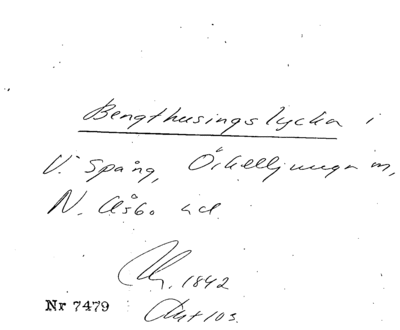 Bengthusingslycka i
V. Spång, Örkelljunga sn,
N. Åsbo hd.
1842
Nr 7479